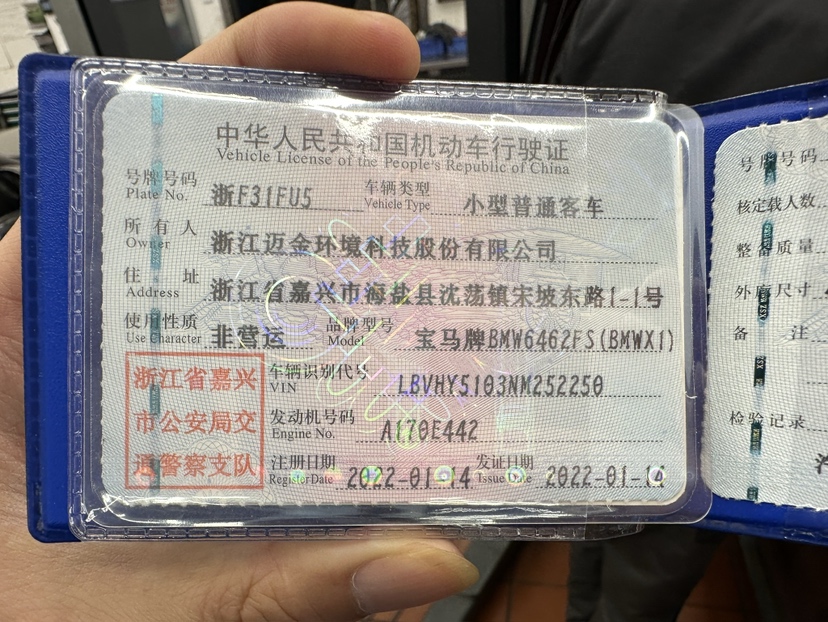 中华人民共和国机动车行驶证
Vehicle License of the People's Republic of China
号牌号码 浙F31FU5 车辆类型 小型普通客车
Plate No. Vehicle Type
所有人 浙江迈金环境科技股份有限公司
Owner
住址 浙江省嘉兴市海盐县沈荡镇宋坡东路1-1号
Address
使用性质 非营运 品牌型号 宝马牌BMW6462FS(BMWX1)
Use Character Model
浙江省嘉兴
市公安局交
通警察支队
车辆识别代号 LBVHY5103NM252250
VIN
发动机号码 A170E442
Engine No.
注册日期 2022-01-14 发证日期 2022-01-14
Register Date Issue Date
号牌号码
核定载人数
整备质量
外廓尺寸
备注
检验记录